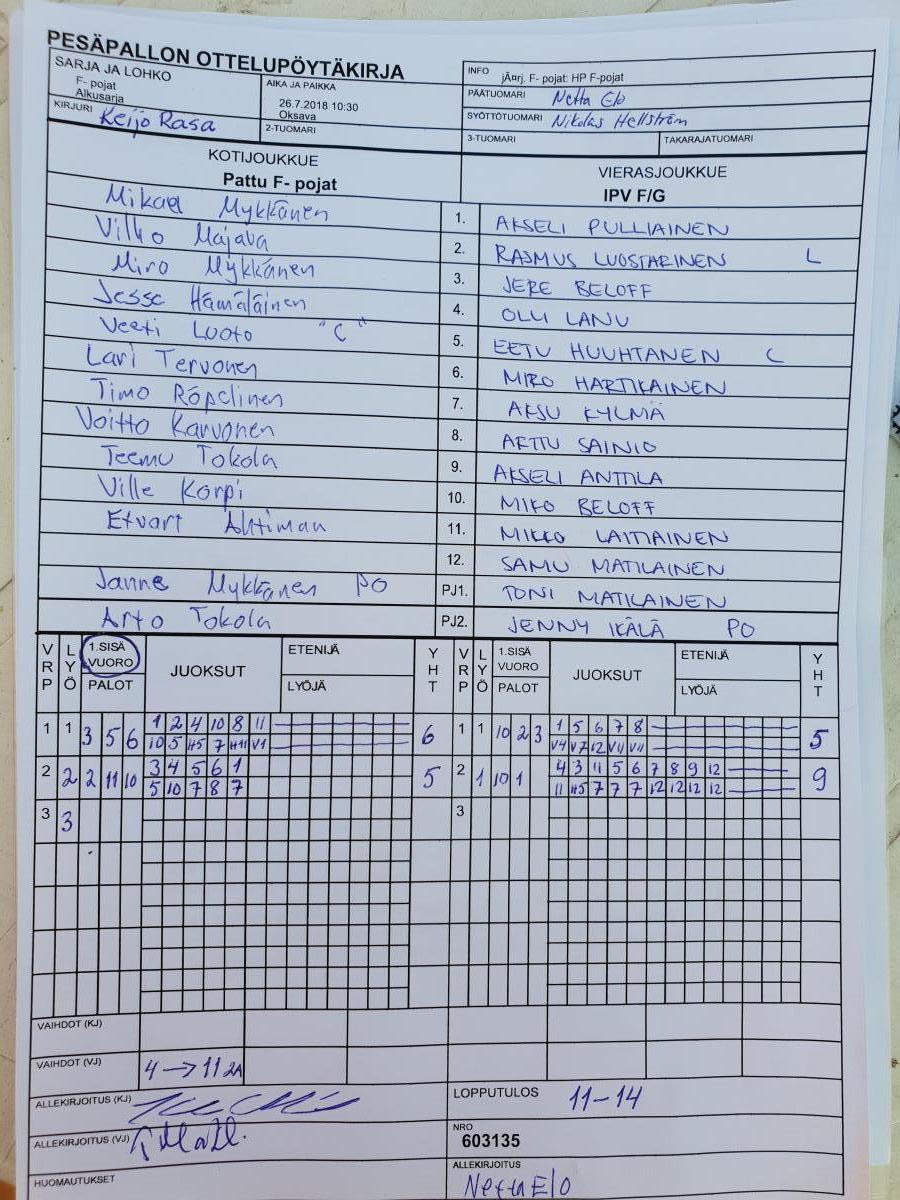 PESÄPALLON OTTELUPÖYTÄKIRJA
SARJA JA LOHKO
F- pojat
Alkusarja
AIKA JA PAIKKA
26.7.2018 10:30
Oksava
INFO jÃ¤rj. F- pojat: HP F-pojat
PÄÄTUOMARI Netta Elo
KIRJURI Keijo Rasa
2-TUOMARI
SYÖTTÖTUOMARI Nikolas Hellström
3-TUOMARI TAKARAJATUOMARI
KOTIJOUKKUE VIERASJOUKKUE
Pattu F- pojat IPV F/G
Mikael Mykkänen 1. AKSELI PULLIAINEN
Vilho Majava 2. RASMUS LUOSTARINEN L
Miro Mykkänen 3. JERE BELOFF
Jesse Hämäläinen 4. OLLI LANU
Veeti Luoto "C" 5. EETU HUUHTANEN C
Lari Tervonen 6. MIRO HARTIKAINEN
Timo Röpelinen 7. AKSU KYLMÄ
Voitto Karvonen 8. ARTTU SAINIO
Teemu Tokola 9. AKSELI ANTTILA
Ville Korpi 10. MIKO BELOFF
Etvart Ahtiman 11. MIKKO LAITIAINEN
12. SAMU MATILAINEN
Janne Mykkänen PO PJ1. TONI MATILAINEN
Arto Tokola PJ2. JENNY IKÄLÄ PO
VRP LYÖ 1.SISÄ VUORO PALOT JUOKSUT ETENIJÄ LYÖJÄ YHT VRP LYÖ 1.SISÄ VUORO PALOT JUOKSUT ETENIJÄ LYÖJÄ YHT
1 1 3 5 6 1 2 4 10 8 11 6 1 1 10 2 3 1 5 6 7 8 5
10 5 H5 7 H11 V1 V4 V7 12 V11 V11
2 2 2 11 10 3 4 5 6 1 5 2 1 10 1 4 3 11 5 6 7 8 9 12 9
5 10 7 8 7 11 H5 7 7 7 12 12 12 12
3 3 3
VAIHDOT (KJ)
VAIHDOT (VJ) 4 → 11 2A
ALLEKIRJOITUS (KJ)
LOPPUTULOS 11-14
ALLEKIRJOITUS (VJ)
NRO
603135
HUOMAUTUKSET
ALLEKIRJOITUS
Netta Elo